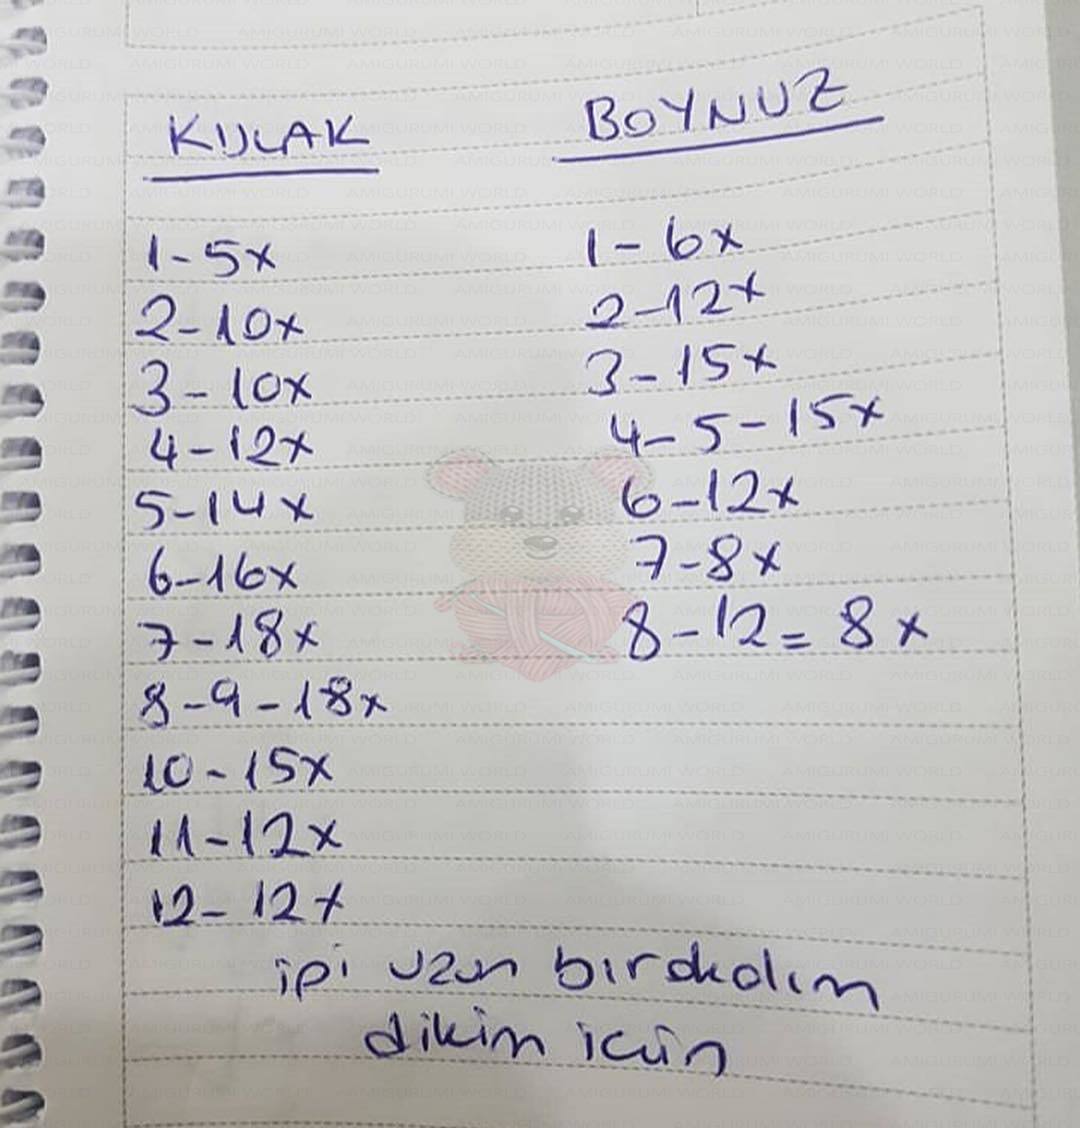 KULAK
1-5x
2-10x
3-10x
4-12x
5-14x
6-16x
7-18x
8-9-18x
10-15x
11-12x
12-12x
BOYNUZ
1-6x
2-12x
3-15x
4-5-15x
6-12x
7-8x
8-12=8x
ipi uzun bırakalım
dikim için
AMIGURUMI WORLD